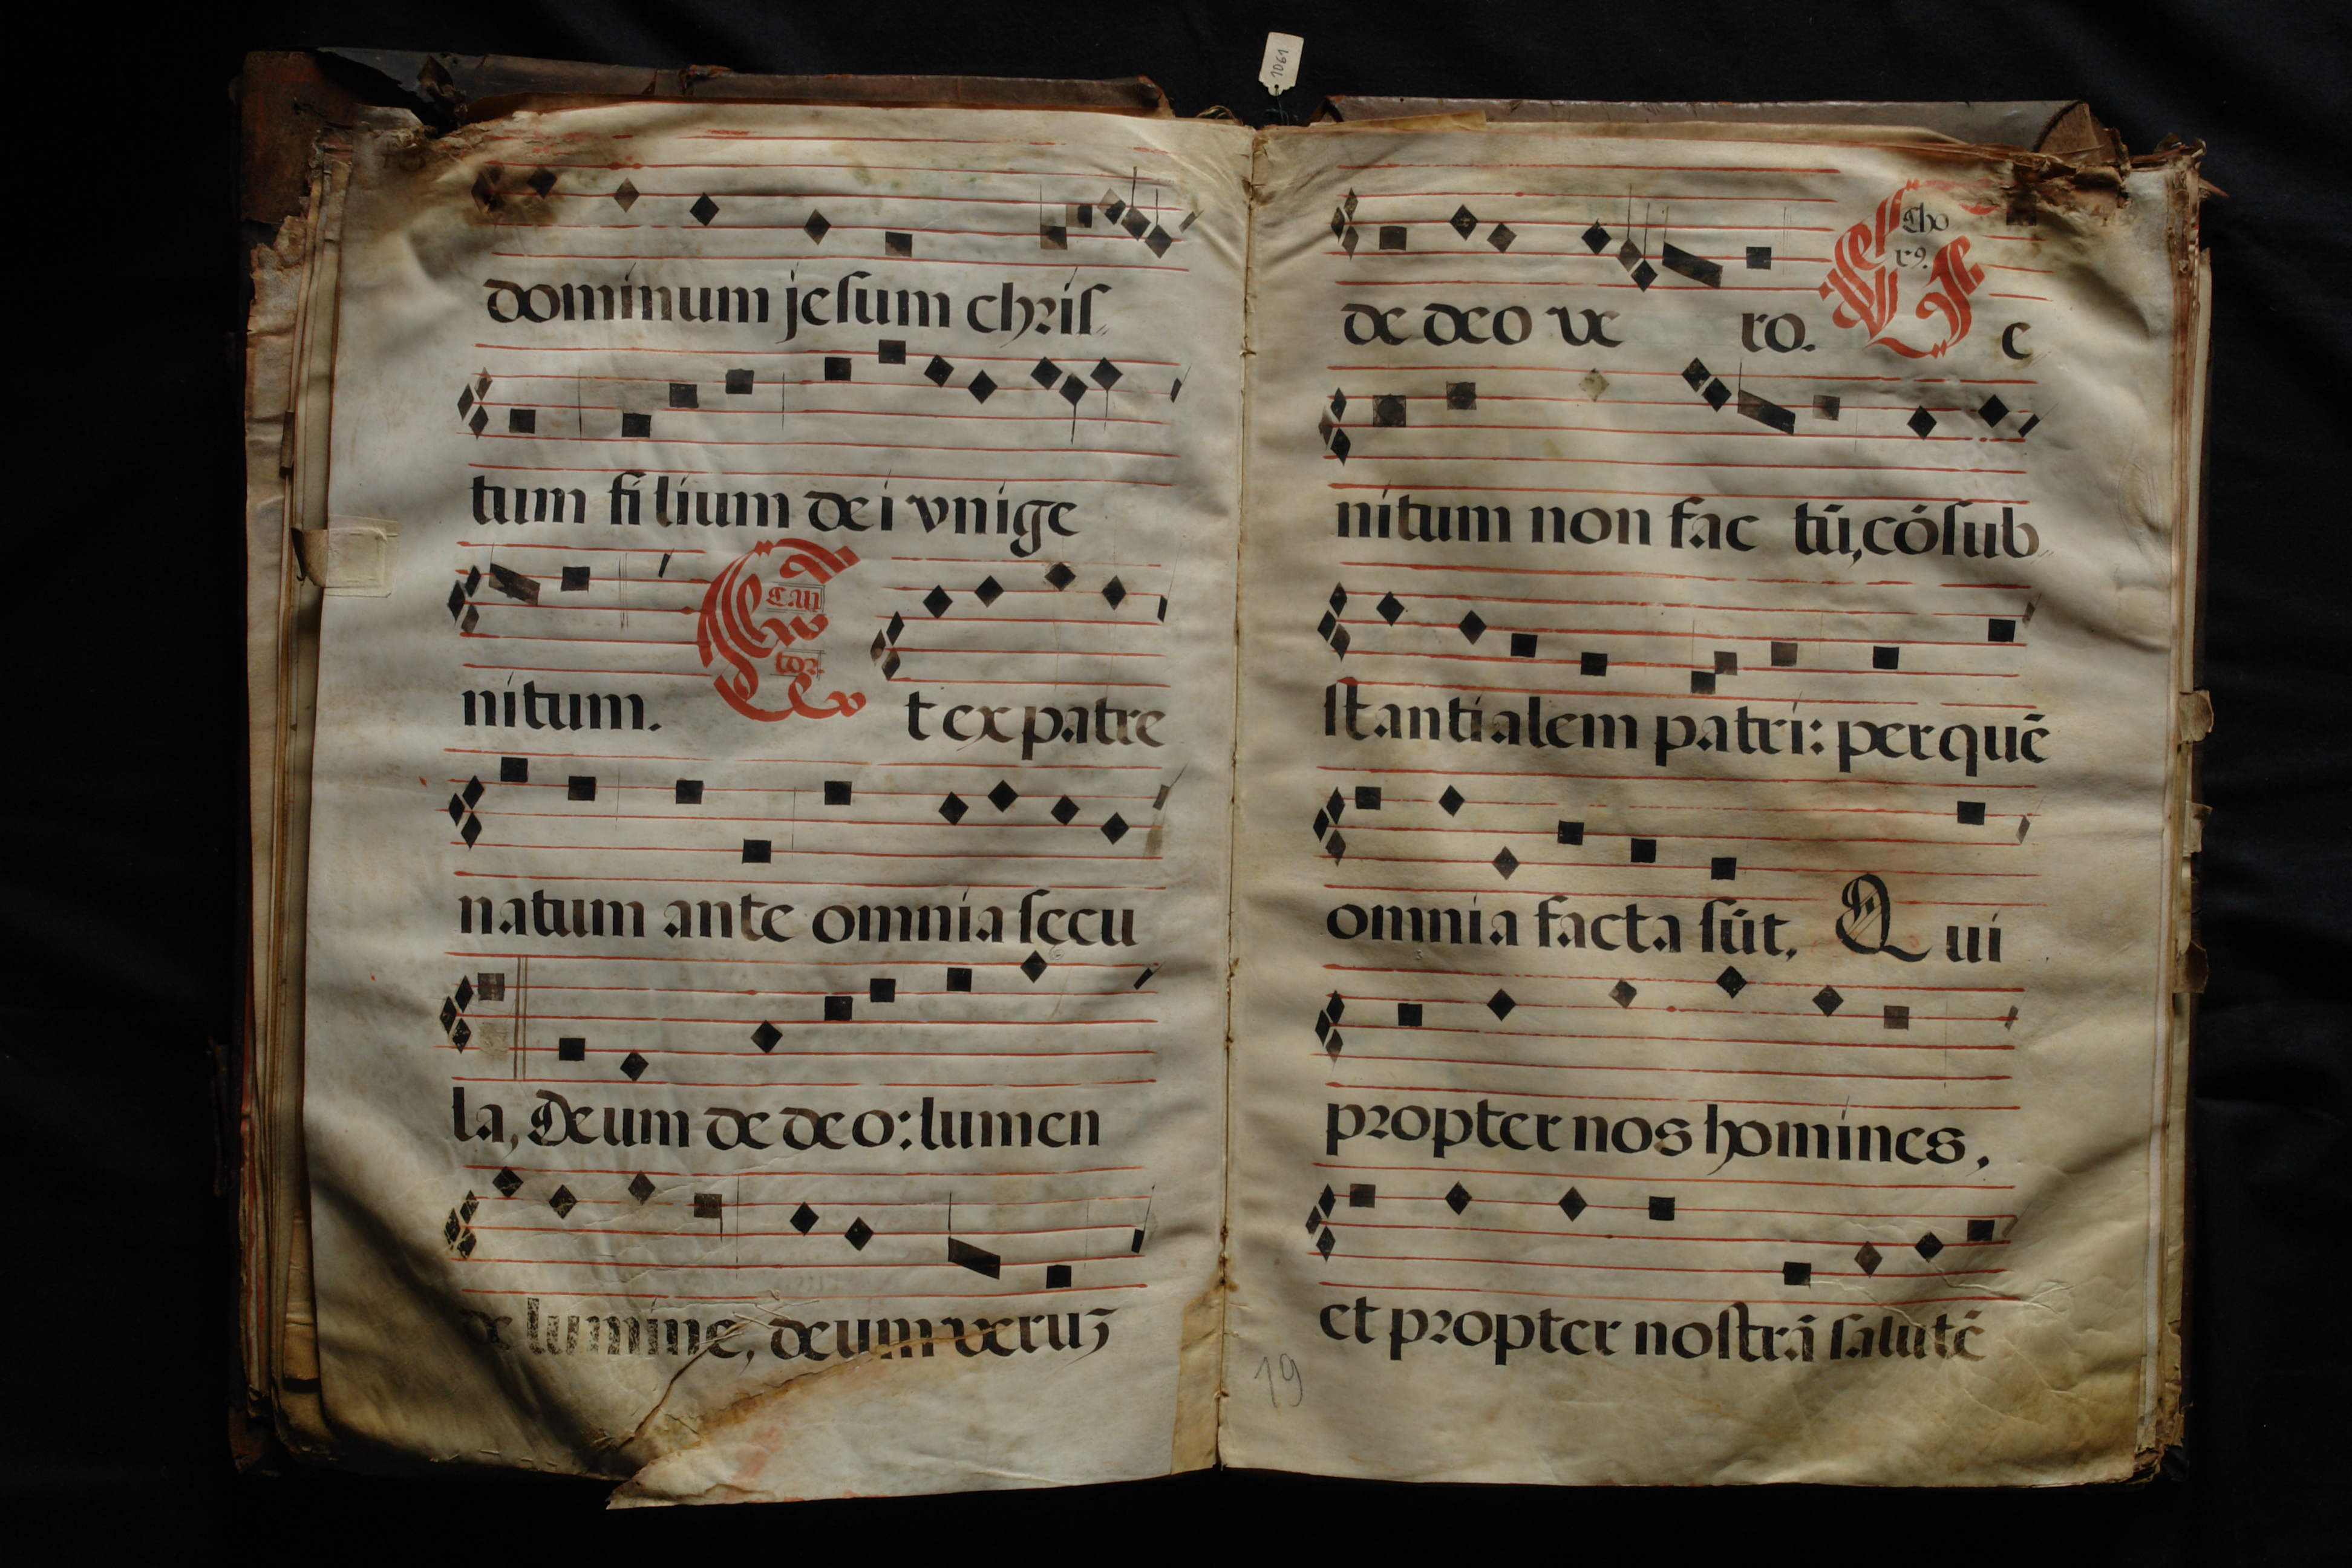 1061
dominum jesum chris
tum filium dei vnige
nitum. Et ex patre
Can
tor.
natum ante omnia sęcu
la, Deum de deo: lumen
de lumine, deum veruz
de deo vero. Ge
Cho
r9.
nitum non fac tū, cōsub
stantialem patri: per quē
omnia facta sūt. Qui
propter nos homines,
et propter nostrā salutē
19